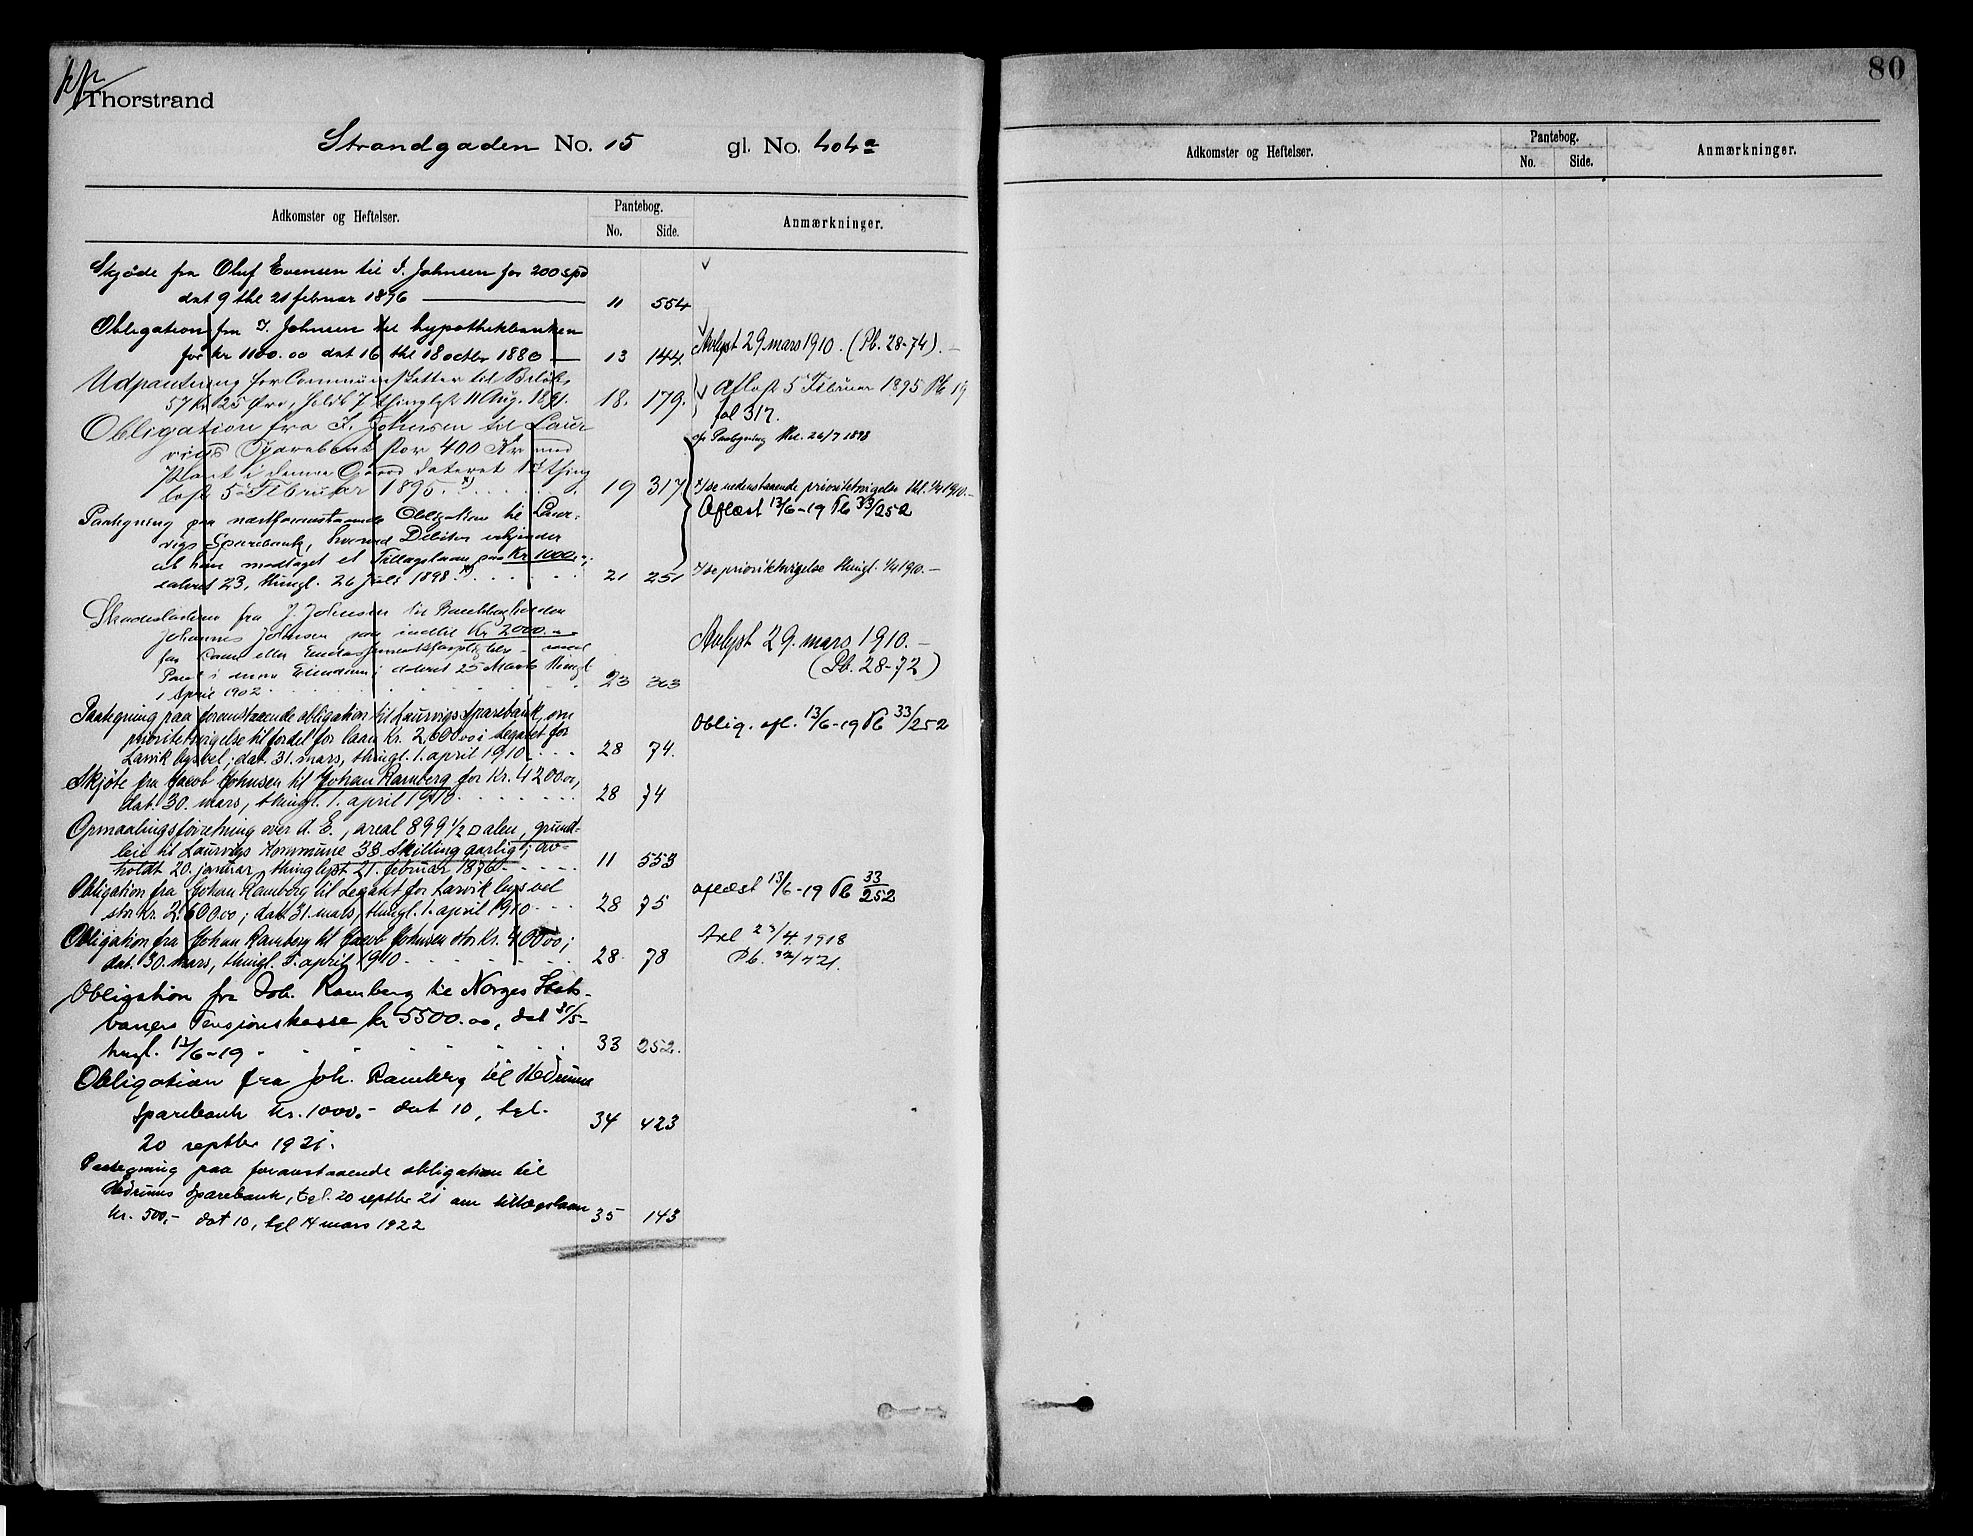 Thorstrand
Strandgaden No. 15 gl. No. 404a
Adkomster og Heftelser. Pantebog. No. Side. Anmærkninger.
Skjøde fra Oluf Evensen til I. Johnsen for 200 spd
dat 9 thl 21 februar 1876 11 554
Obligation fra I. Johnsen til hypothekbanken
for kr 1100.00 dat 16 thl 18 octbr 1880 13 144. Avlyst 29 mars 1910. (Pb. 28-74).
Udpantning for Communeskatter til Beløb
57 Kr 25 Øre, thinglyst 11 Aug. 1891. 18. 179. Aflyst 5 Februar 1895 Pb 19
fol 317.
Obligation fra I. Johnsen til Laur
vigs Sparebank stor 400 Kr med
Pant i denne Gaard dateret 1st thing
lyst 5 Februar 1895. x) 19 317
cfr Paategning thl. 26/7 1898
x/ se nedenstaaende prioritetsvigelse thl. 1/4 1910.-
Aflæst 13/6-19 Pb 33/252
Paategning paa næstforanstaaende Obligation til Laur-
vigs Sparebank, hvorved Debitor erkjender
at have modtaget et Tillægslaan paa Kr 1000.-;
dateret 23, thingl. 26 Juli 1898. x) 21 251 x/ se prioritetsvigelse thingl. 1/4 1910.-
Skadesløsbrev fra J. Johnsen til
Johannes Johnsen for indtil Kr 2000.-
for Laan eller - med
Pant i denne Eiendom; dateret 25 Marts thingl
1 April 1902. 23 303
Avlyst 29. mars 1910.-
(Pb. 28-72)
Paategning paa foranstaaende obligation til Laurvigs Sparebank, om
prioritetsvigelse til fordel for laan kr. 2,600.00 i Legatet for
Larvik bys vel; dat. 31. mars, thingl. 1. april 1910. 28 74. Oblig. afl. 13/6-19 Pb 33/252
Skjøte fra Jacob Johnsen til Johan Ramberg for Kr. 4200.00,
dat. 30. mars, thingl. 1. april 1910. 28 74
Opmaalingsforretning over d. E., areal 899 1/2 □ alen, grund-
leie til Laurvigs Kommune 33 Skilling aarlig; av-
holdt 20. januar, thinglyst 21. februar 1876. 11 553
Obligation fra Johan Ramberg til Legatet for Larvik bys vel
stor kr. 2,600.00; dat. 31. mars, thingl. 1. april 1910 28 75 aflæst 13/6-19 Pb 33/252
Obligation fra Johan Ramberg til Jacob Johnsen stor kr. 400.00;
dat. 30. mars, thingl. 5. april 1910. 28. 78
Avl 23/4 1918
Pb. 32/721.
Obligation fra Joh. Ramberg til Norges Stats-
baners Pensjonskasse kr 5500.00, dat 31/5-
tingl. 13/6-19 33 252.
Obligation fra Joh. Ramberg til Hedrums
Sparebank kr. 1000.- dat 10, tgl.
20 septbr 1921. 34 423
Paategning paa foranstaaende obligation til
Hedrums Sparebank, tgl. 20 septbr 21 om tillægslaan
kr. 500,- dat 10, tgl 14 mars 1922 35 143
80
Adkomster og Heftelser. Pantebog. No. Side. Anmærkninger.